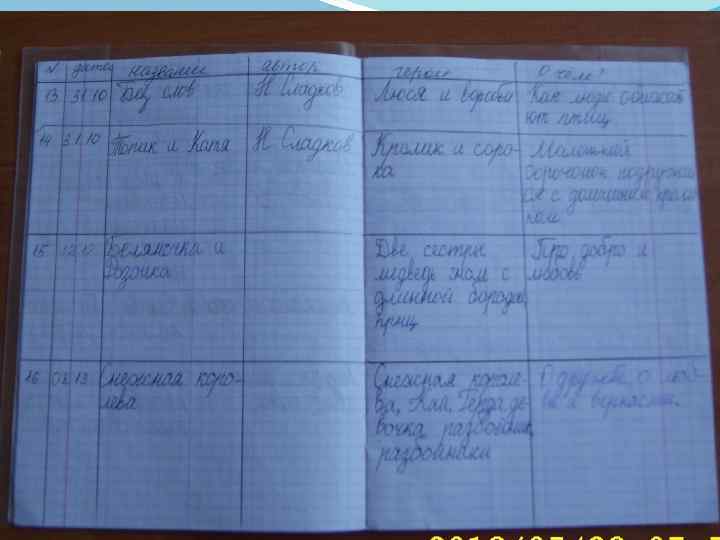 N дата название автор герои О чём?
13 31.10 Без слов Н Сладков Люся и воробьи Как люди обижают птиц
14 31.10 Топик и Катя Н Сладков Кролик и соро-
ка Маленький
сорочонок подружил-
ся с домашним кроли-
ком
15 12.12 Беляночка и
Розочка Две сестры
медведь гном с
длинной бородой
принц Про добро и
любовь
16 02.13 Снежная коро-
лева Снежная короле-
ва, Кай, Герда де-
вочка разбойник
разбойники О дружбе, о люб-
ви и верности.